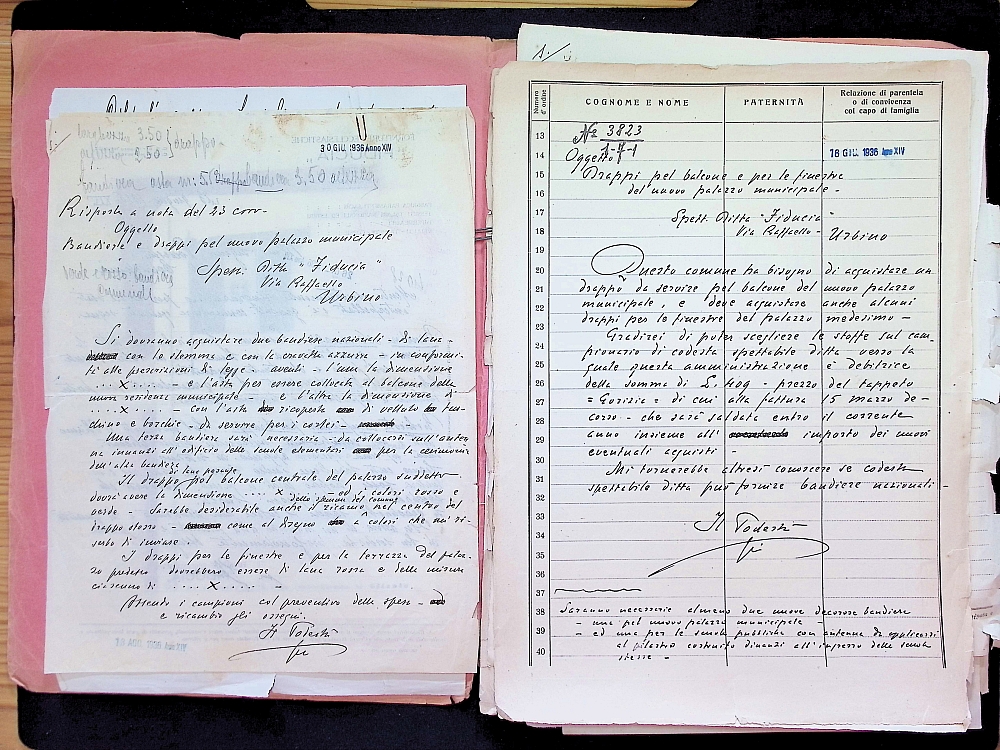 30 GIU. 1936 Anno XIV
3.50
3.50
drappo
3.50
Risposta a nota del 23 corr.
Oggetto
Bandiere e drappi pel nuovo palazzo municipale
Spett. Ditta "Fiducia"
Via Raffaello
Urbino
Si dovranno acquistare due bandiere nazionali - di lana -
con lo stemma e con la cravatta azzurra - in conformi-
tà alle prescrizioni di legge - aventi - l'una la dimensione
.... x .... - e l'asta per essere collocata al balcone della
nuova residenza municipale - e l'altra la dimensione di
.... x .... - con l'asta ricoperta di velluto tur-
chino e borchie - da servire per i cortei -
Una terza bandiera sarà necessaria - da collocarsi sull'anten
na innanzi all'edificio delle scuole elementari per la cerimonia
dell'alza bandiera
di lana pesante
Il drappo pel balcone centrale del palazzo suddetto
dovrà avere la dimensione .... x .... - ed i colori rosso e
verde - Sarebbe desiderabile anche il ricamo nel centro del
dello stemma del comune
drappo stesso - come al disegno a colori che mi ri-
servo di inviare.
I drappi per le finestre e per la terrazza del palaz-
zo predetto dovrebbero essere di lana rossa e della misura
ciascuno di .... x ....
Attendo i campioni col preventivo della spesa -
e ricambio gli ossequi.
Il Podestà
Numero d'ordine
COGNOME E NOME
PATERNITÀ
Relazione di parentela
o di convivenza
col capo di famiglia
13
No 3823
14
Oggetto
16 GIU. 1936 Anno XIV
15
Drappi pel balcone e per le finestre
16
del nuovo palazzo municipale -
17
Spett. Ditta "Fiducia"
18
Via Raffaello - Urbino
19
20
Questo comune ha bisogno di acquistare un
21
drappo da servire pel balcone del nuovo palazzo
22
municipale, e deve acquistare anche alcuni
drappi per le finestre del palazzo medesimo -
23
Gradirei di poter scegliere le stoffe sul cam-
24
pionario di codesta spettabile ditta verso la
25
quale questa amministrazione è debitrice
26
della somma di L. 409 - prezzo del tappeto
27
= Gorizia = di cui alla fattura 15 marzo de-
28
corso - che sarà saldata entro il corrente
29
anno insieme all' importo dei nuovi
30
eventuali acquisti -
31
Mi tornerebbe altresì conoscere se codesta
32
spettabile ditta può fornire bandiere nazionali -
33
Il Podestà
34
35
36
37
38
Saranno necessarie almeno due nuove decorose bandiere
- una pel nuovo palazzo municipale -
39
- ed una per le scuole pubbliche con antenna da applicarsi
al pilastro costruito dinanzi all'ingresso delle scuole
40
stesse -